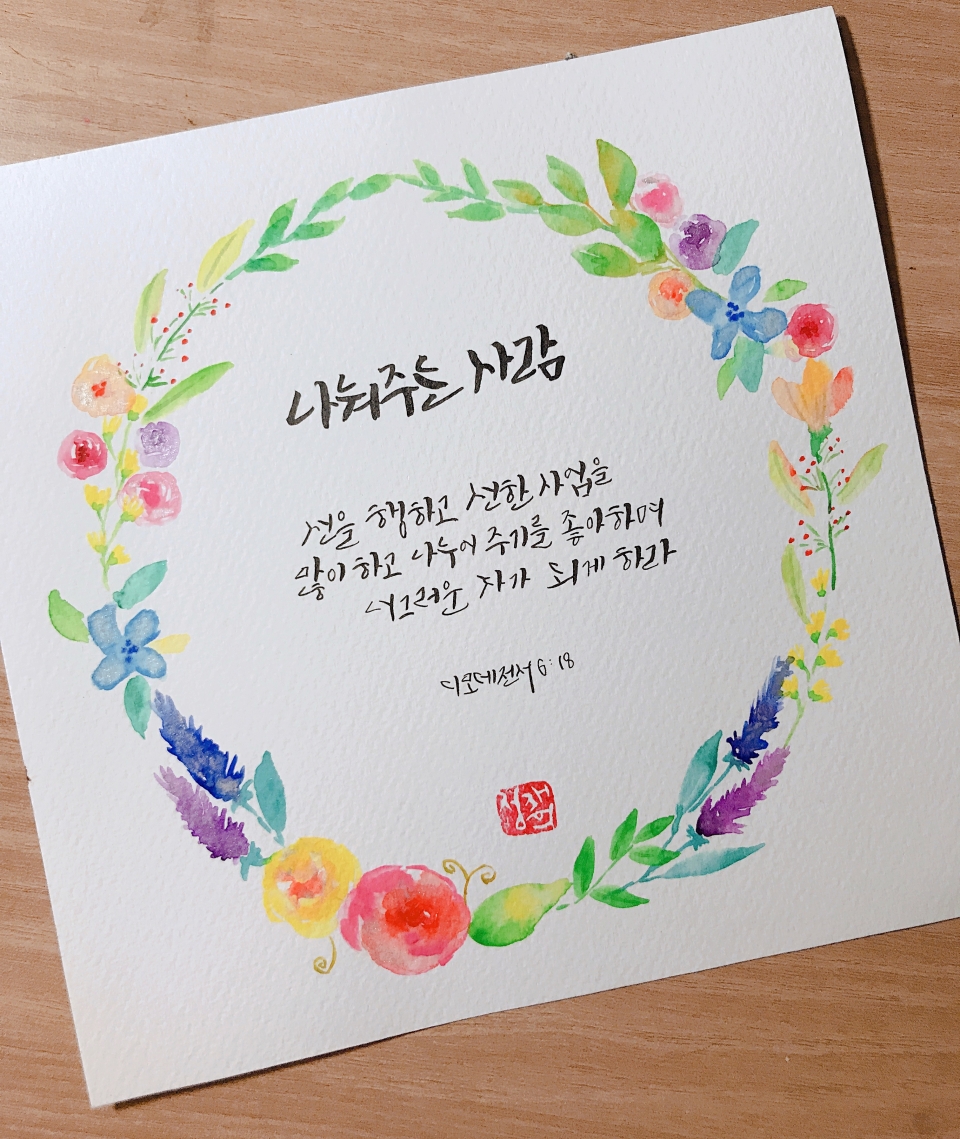 나눠주는 사람
선을 행하고 선한 사업을
많이 하고 나누어 주기를 좋아하며
너그러운 자가 되게 하라
디모데전서 6:18